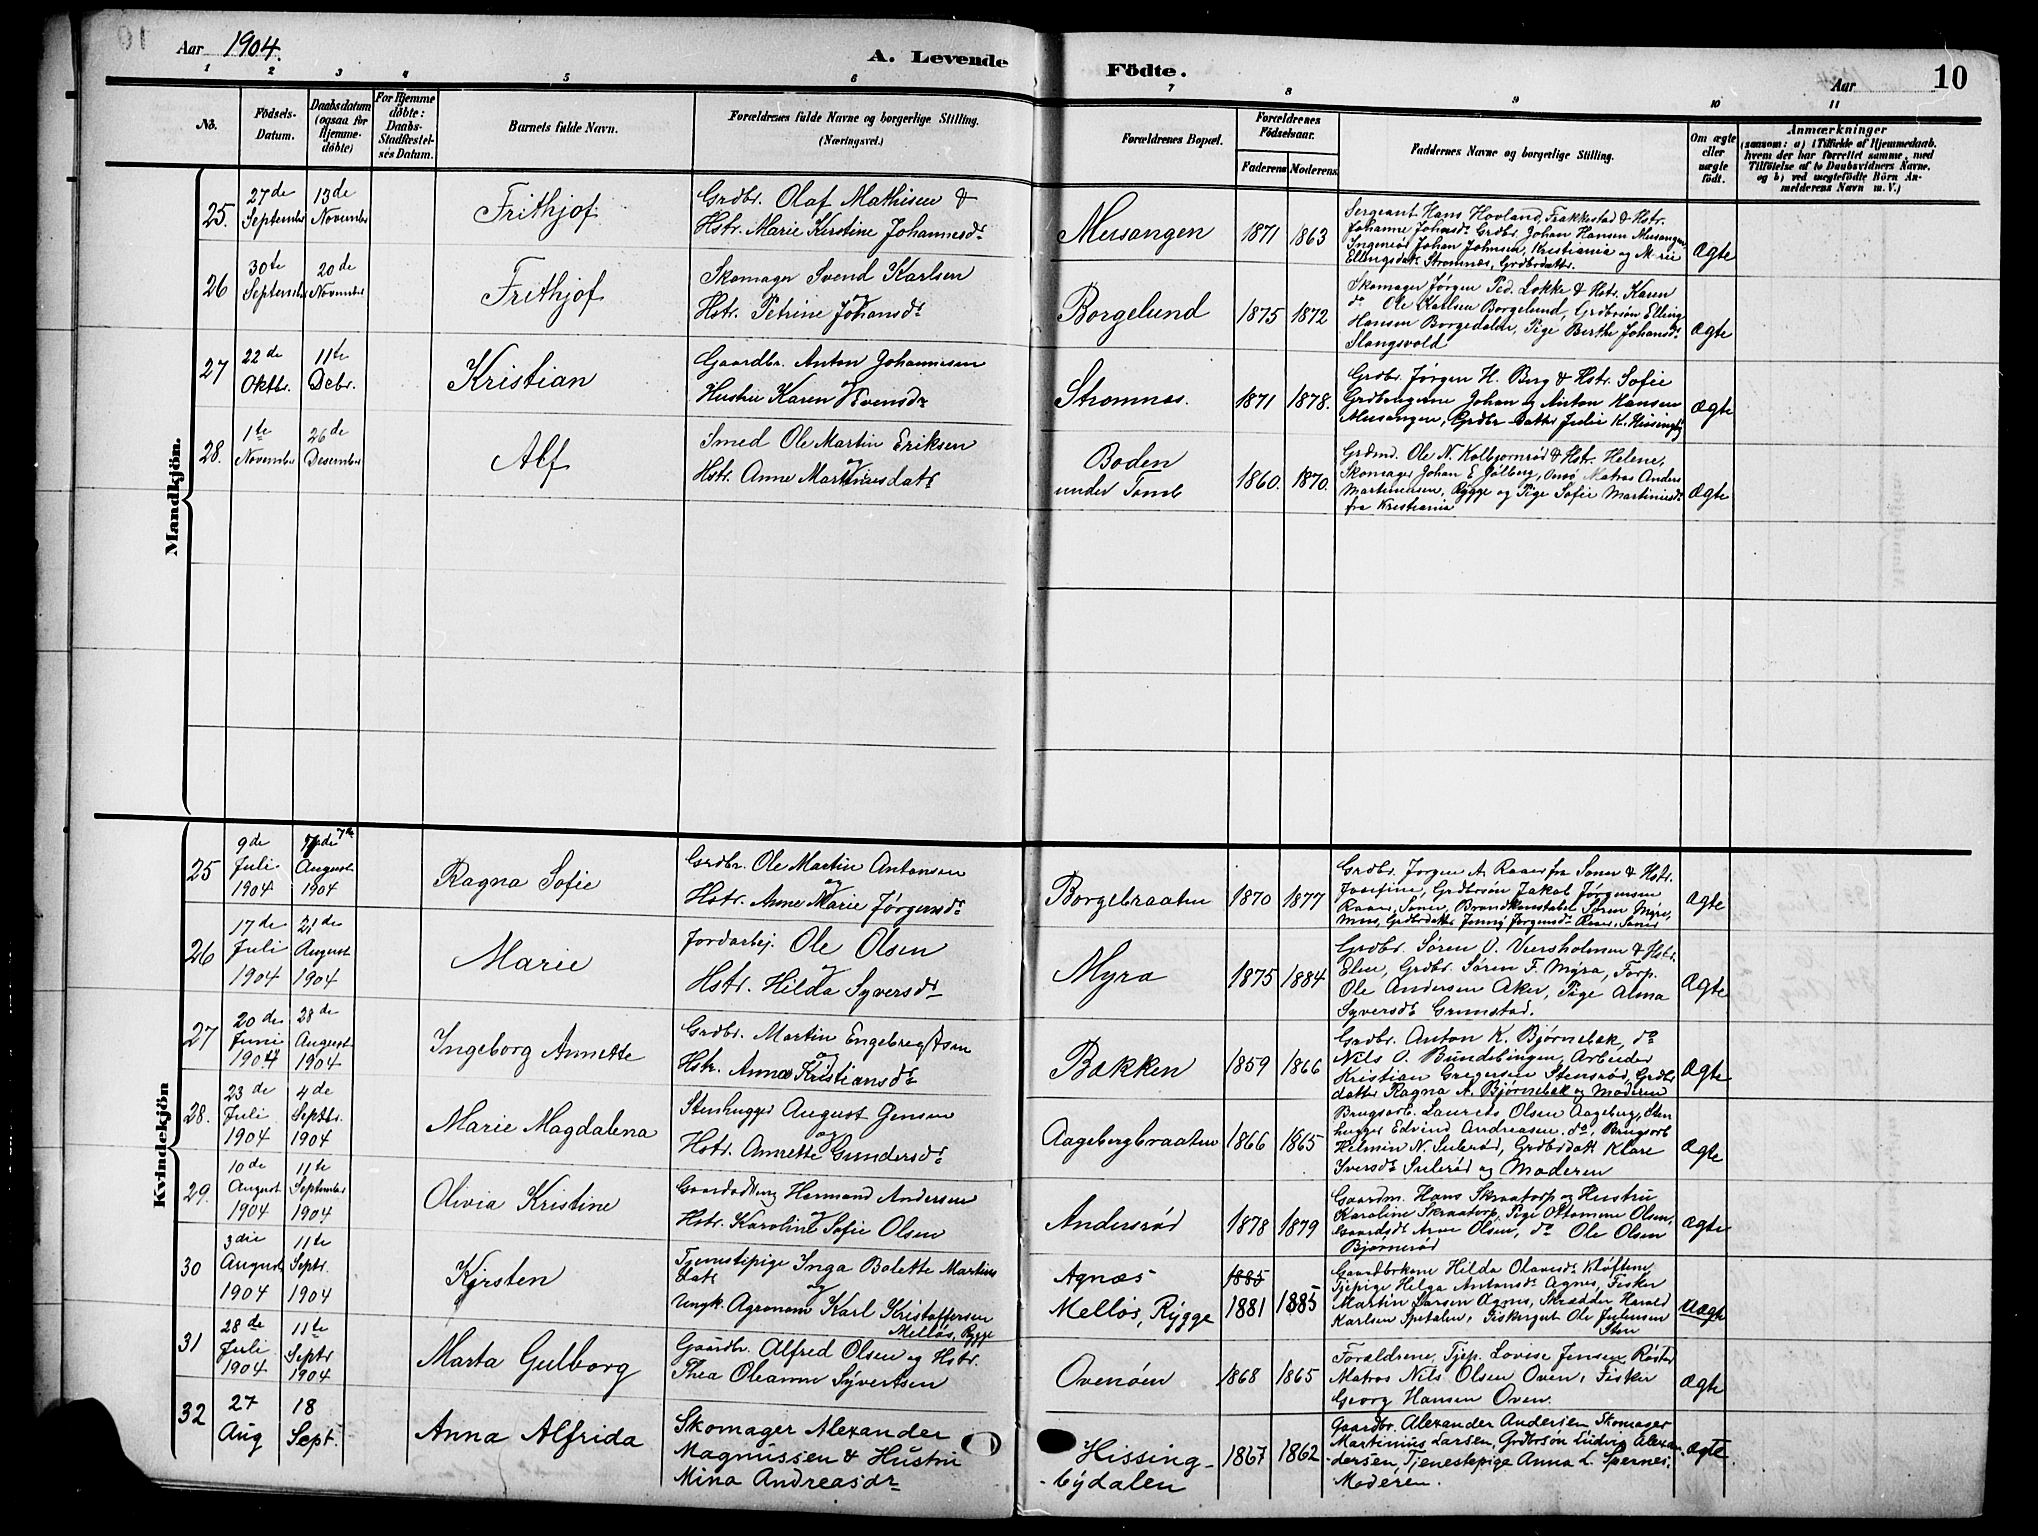 Aar 1904.
A. Levende
Födte.
Aar
10
1 2 3 4 5 6 7 8 9 10 11
No.
Födsels-
Datum.
Daabsdatum
(ogsaa for
Hjemme-
døbte)
For Hjemme
døbte:
Daabs-
Stadfæstel-
ses Datum.
Barnets fulde Navn.
Forældrenes fulde Navne og borgerlige Stilling.
(Næringsvei.)
Forældrenes Bopæl.
Forældrenes
Födselsaar.
Faderens
Moderens.
Faddernes Navne og borgerlige Stilling.
Om ægte
eller
uægte
født.
Anmærkninger
(saasom: a) i Tilfælde af Hjemmedaab,
hvem der har forrettet samme, med
Tilföielse af to Daabsvidners Navne,
og b) ved uægtefödte Börn An-
melderens Navn m.V.)
Mandkjön.
25.
27de
September
13de
November
Frithjof
Grdbr. Olaf Mathisen &
Hstr. Marie Kirstine Johannesdr
Musangen
1871
1863
Sergeant Hans Hovland, Frakkestad & Hstr.
Johanne Johnsdr Grdbr. Johan Hansen Musangen
Ingeniør Johan Johnsen, Kristiania og Marie
Ellingsdatr Stromnæs, Grdbrdattr.
Ægte
26
30te
September
20de
November
Frithjof
Skomager Svend Karlsen
og
Hstr. Petrine Johansdr
Borgelund
1875
1872
Skomager Jørgen Ped. Løkke & Hstr. Karen
do Ole Karlsen Borgelund, Grdbrsøn Elling
Hansen Borgedalen, Pige Berthe Johansdr
Slangsvold
Ægte
27
22de
Oktbr.
11te
Debr.
Kristian
Gaardbr. Anton Johannesen
og
Hustru Karen Evensdr
Strømnæs.
1871
1878.
Grdbr. Jørgen H. Berg & Hstr. Sofie
Grdbrungerne Johan og Anton Hansen
Musangen, Grdbr Datter Julie K. Hissingby
Ægte
28.
1te
November
26de
Desember
Alf
Smed Ole Martin Eriksen
og
Hstr. Anne Martinesdatr
Boden
under Tomb
1860.
1870.
Grdmd. Ole N. Kolbjornrød & Hstr. Helene,
Skomager Johan E. Jølberg, Onsø Matros Anders
Martinensen, Rygge og Pige Sofie Martiniusdr
fra Kristiania
Ægte
Kvindekjön
25
9de
Juli
1904
7de
August
1904
Ragna Sofie
Grdbr. Ole Martin Antonsen
og
Hstr. Anne Marie Jørgensdr
Borgebraaten
1870
1877
Grdbr. Jørgen A. Raaer fra Soner & Hstr.
Josefine, Grdbrsøn Jakob Jørgensen
Raaer, Soner, Brandkonstabel Søren Myre,
Moss, Grdbrdatter Jenny Jørgensdr Raaer, Soner
Ægte
26
17de
Juli
1904
21de
August
1904
Marie
Jordarbej. Ole Olsen
og
Hstr. Hilda Syversdr
Myra
1875
1884
Grdbr. Søren O. Veersholmen & Hstr.
Elen, Grdbr. Søren F. Myra, Torp.
Ole Andersen Aker, Pige Alma
Syversdr Grimstad.
Ægte
27
20de
Juni
1904
28de
August
1904
Ingeborg Annette
Grdbr. Martin Engebregtsen
og
Hstr. Anna Kristiansdr
Bakken
1859
1866
Grdbr. Anton K. Bjørnebæk, do
Nils O. Bundebingen, Arbeider
Kristian Gregersen Stensrød, Grdbr
datter Ragna A. Bjørnebæk og Moderen
Ægte
28.
23de
Juli
1904
4de
Septbr.
1904
Marie Magdalena
Stenhugger August Jensen
og
Hstr. Annette Gundersdr
Aagebergbraaten
1866
1865
Brugsarb. Laurets Olsen Aageberg, Sten
hugger Edvind Andreasen do, Brugsarb
Helmin N. Sulerød, Grdbrdatr Klare
Iversdr Sulerød og Moderen
Ægte
29.
10de
August
1904
11te
September
1904
Olivia Kristine
Herman Andersen
og
Hstr. Karoline Sofie Olsen
Andersrød
1878
1879
Gaardm. Hans Skraatorp og Hustru
Karoline Skraatorp, Pige Ottomine Olsen,
Gaardsdr Arve Olsen, do Ole Olsen
Bjørnerød
Ægte
30
3die
August
1904
11te
Septr.
1904
Kjrsten
Tjenestepige Inga Bolette Martins
datr
og
Ungk. Agronom Karl Kristoffersen
Melløs, Rygge
Agnæs
Melløs, Rygge
1885
1881
1885
Gaardbrkone Hilda Olavesdr Kløften
Tjepige Helga Antonsdr Agnes, Fisker
Martin Larsen Agnes, Skrædder Harald
Karlsen Spetalen, Fiskergut Ole Julensen
Sten
Uægte
31
28de
Juli
1904
11te
Septr
1904
Marta Gulborg
Gaardbr. Alfred Olsen og Hstr.
Thea Oleanna Syvertsen
Ovenøen
1868
1865
Forældrene, Tjep. Lovise Jensen, Røstad
Matros Nils Olsen Oven, Fisker
Georg Hansen Oven.
Ægte
32
27
Aug
18
Sept.
Anna Alfrida
Skomager Alexander
Magnussen & Hustru
Mina Andreasdr
Hissing-
bydalen
1867
1862
Gaardbr. Alexander Andersen Skomager
Martinius Larsen, Grdbrsøn Ludvig Alexan-
dersen, Tjenestepige Anna L. Spernes,
Moderen.
Ægte